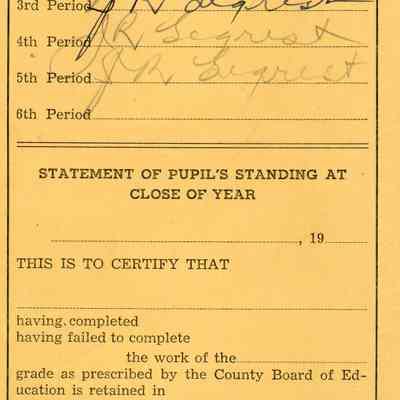 3rd Period J R Segrest
4th Period J R Segrest
5th Period J R Segrest
6th Period
STATEMENT OF PUPIL'S STANDING AT
CLOSE OF YEAR
, 19
THIS IS TO CERTIFY THAT
having completed
having failed to complete
the work of the
grade as prescribed by the County Board of Ed-
ucation is retained in